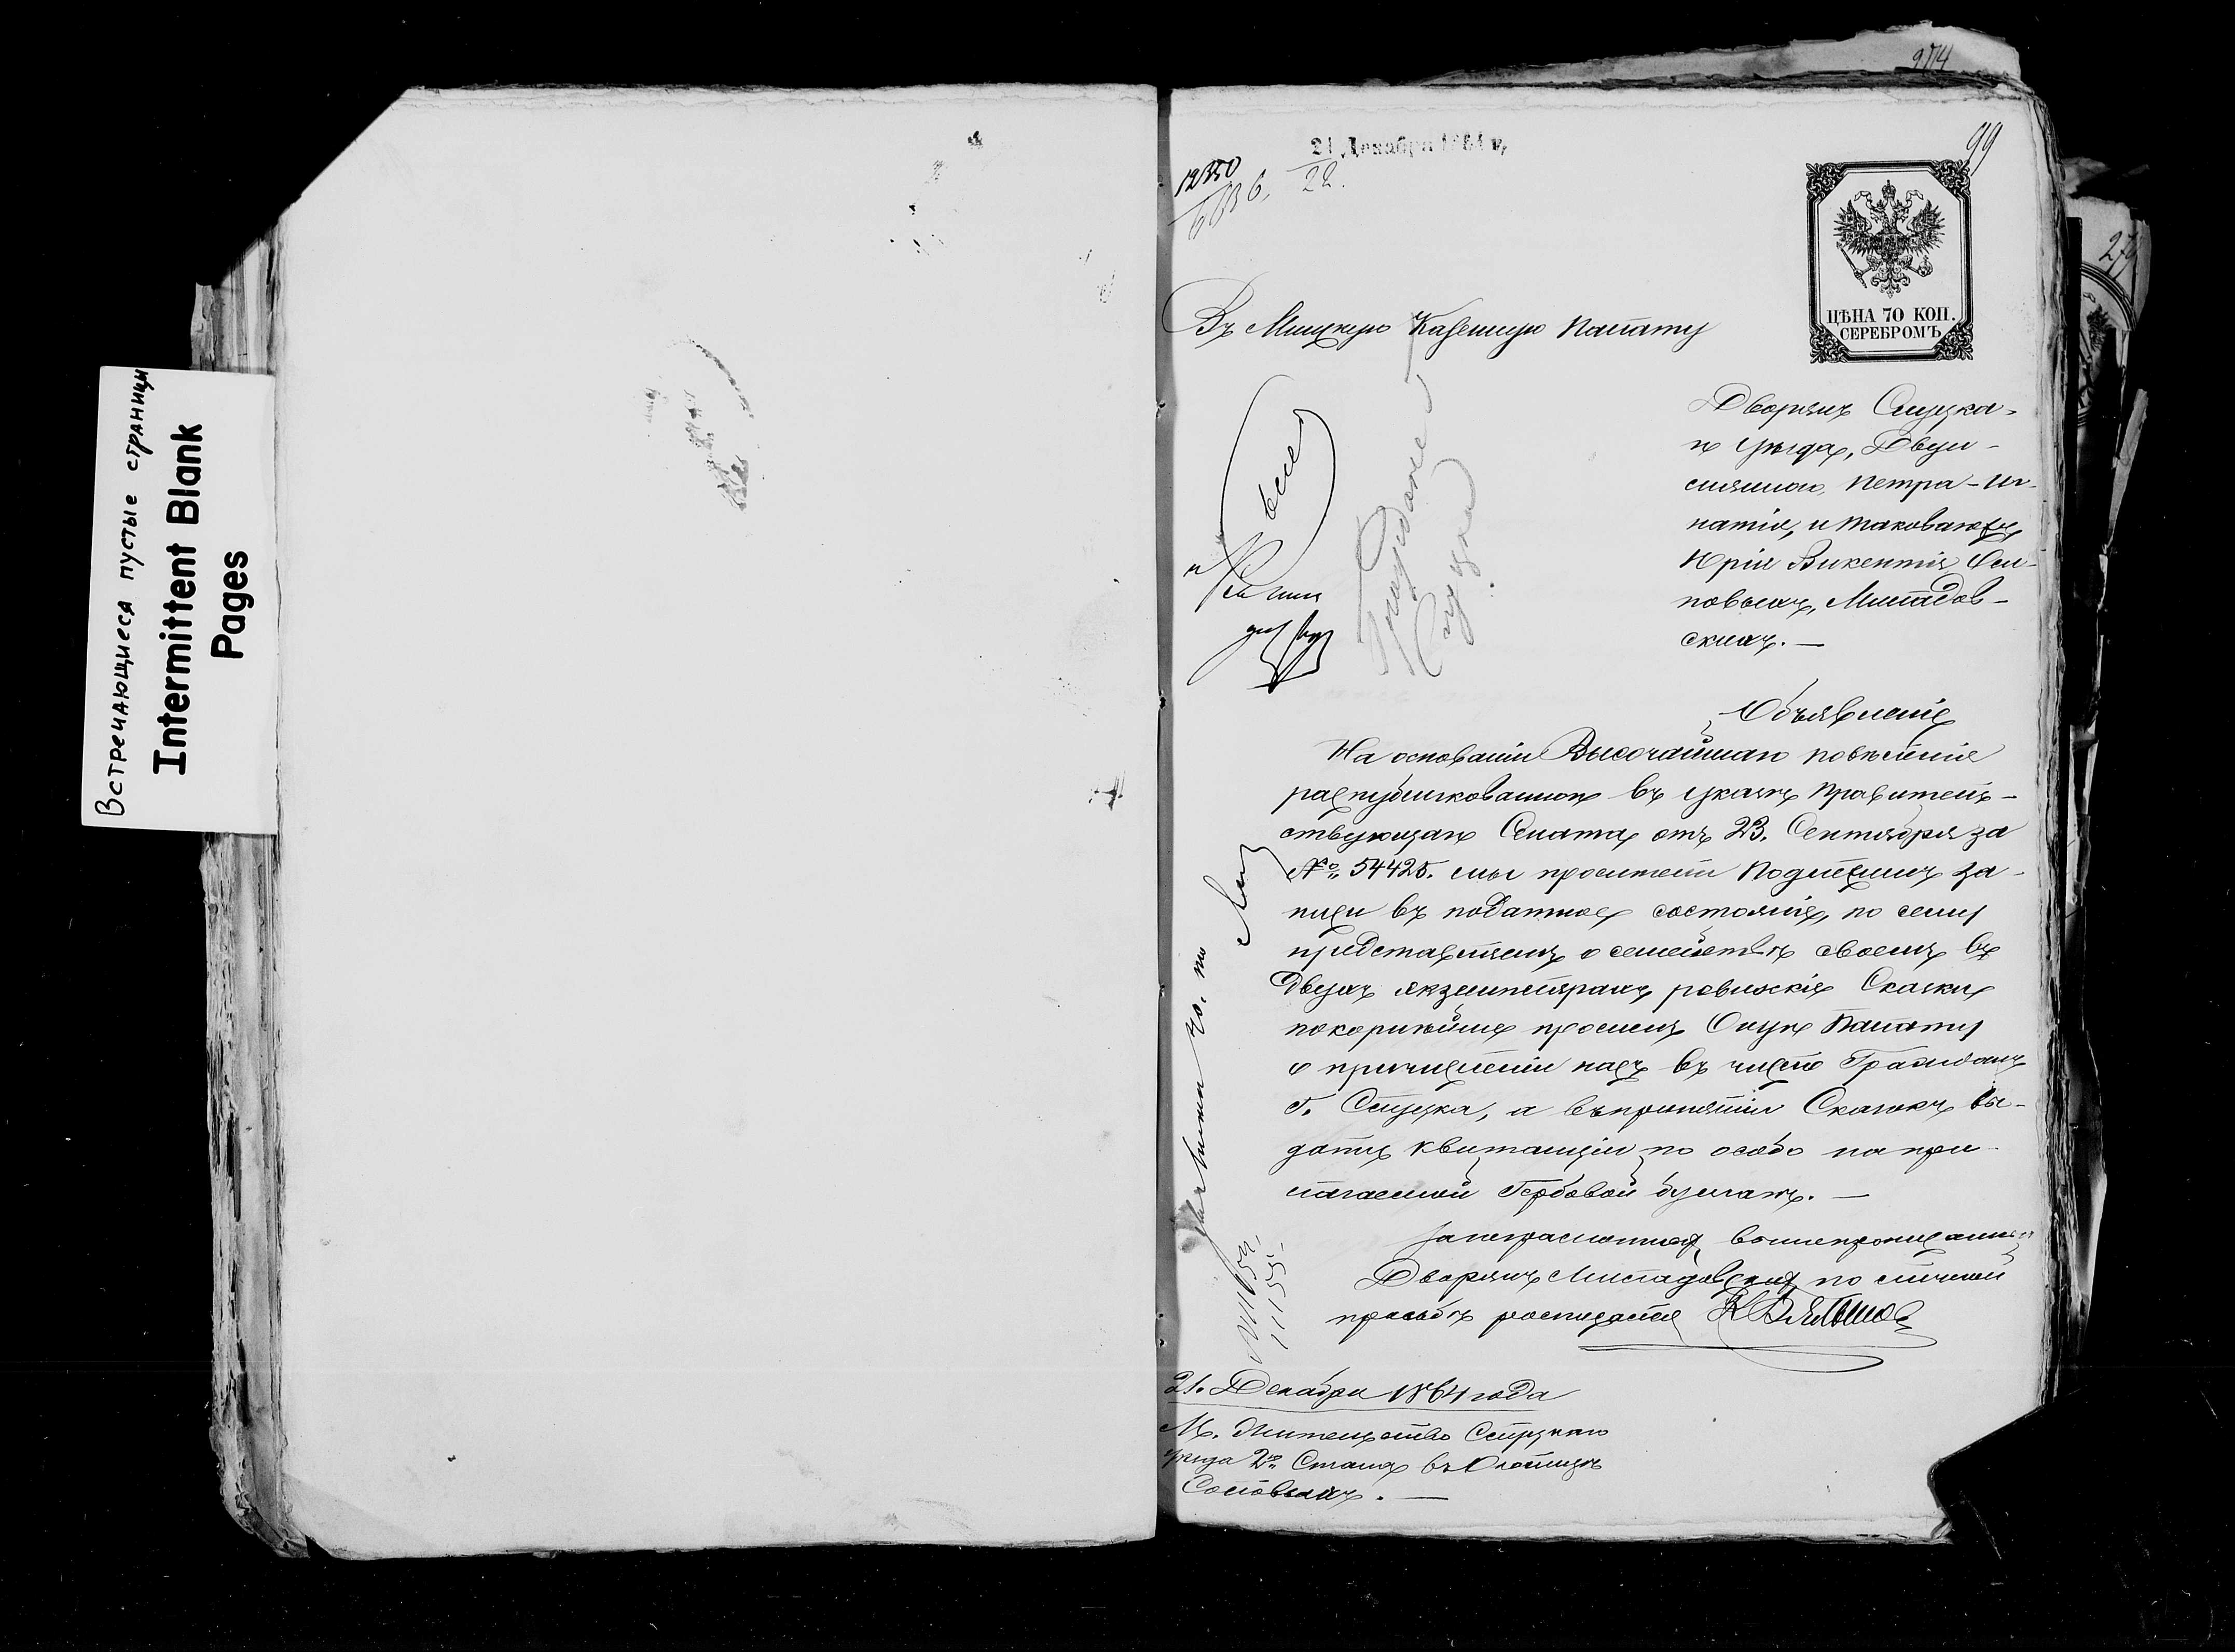 Встречающиеся пустые страницы
Intermittent Blank
Pages
274
99
21 Декабря 1864 г.
22.
12350
ЦѢНА 70 КОП.
СЕРЕБРОМЪ
Въ Минскую Казенную Палату
Дворянъ Слуцка-
го уѣзда,
Петра-Иг-
натія, и таковагожъ
Юрія Викентія Оси-
повыхъ, Милядов-
скихъ. —
Граждане
Слуцка
Объявленіе
На основаніи Высочайшаго повѣленія
распубликованнон въ указѣ Правитель-
ствующаго Сената отъ 23. Сентября за
№ 54425. мы просители подлежимъ за-
писи въ податное состояніе, по сему
представляемъ о семействѣ своемъ въ
двухъ экземплярахъ ревизскія Сказки
покорнѣйше просимъ Оную Палату
о причисленіи насъ въ число Гражданъ
г. Слуцка, а въпринятіи Сказокъ вы-
дать квитанціи по особо на при-
лагаемой Гербовой бумагѣ. —
За неграмотныхъ вышепрописанныхъ
Дворянъ Милядовскихъ по личной
прозьбѣ росписался
21. Декабря 1864 года
М. Жительство Слуцкаго
уѣзда 2го Стана въ Околицѣ